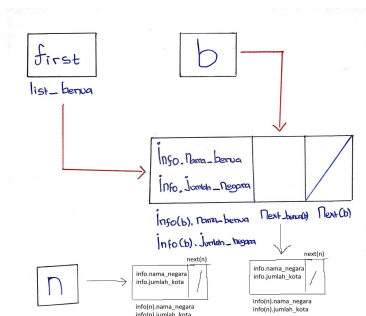 first
b
list_benua
Info.Nama_benua
Info.Jumlah_Negara
Info(b).Nama_benua Next_benua(b) Next(b)
Info(b).Jumlah_Negara
n
next(n)
info.nama_negara
info.jumlah_kota
info(n).nama_negara
info(n).jumlah_kota
next(n)
info.nama_negara
info.jumlah_kota
info(n).nama_negara
info(n).jumlah_kota